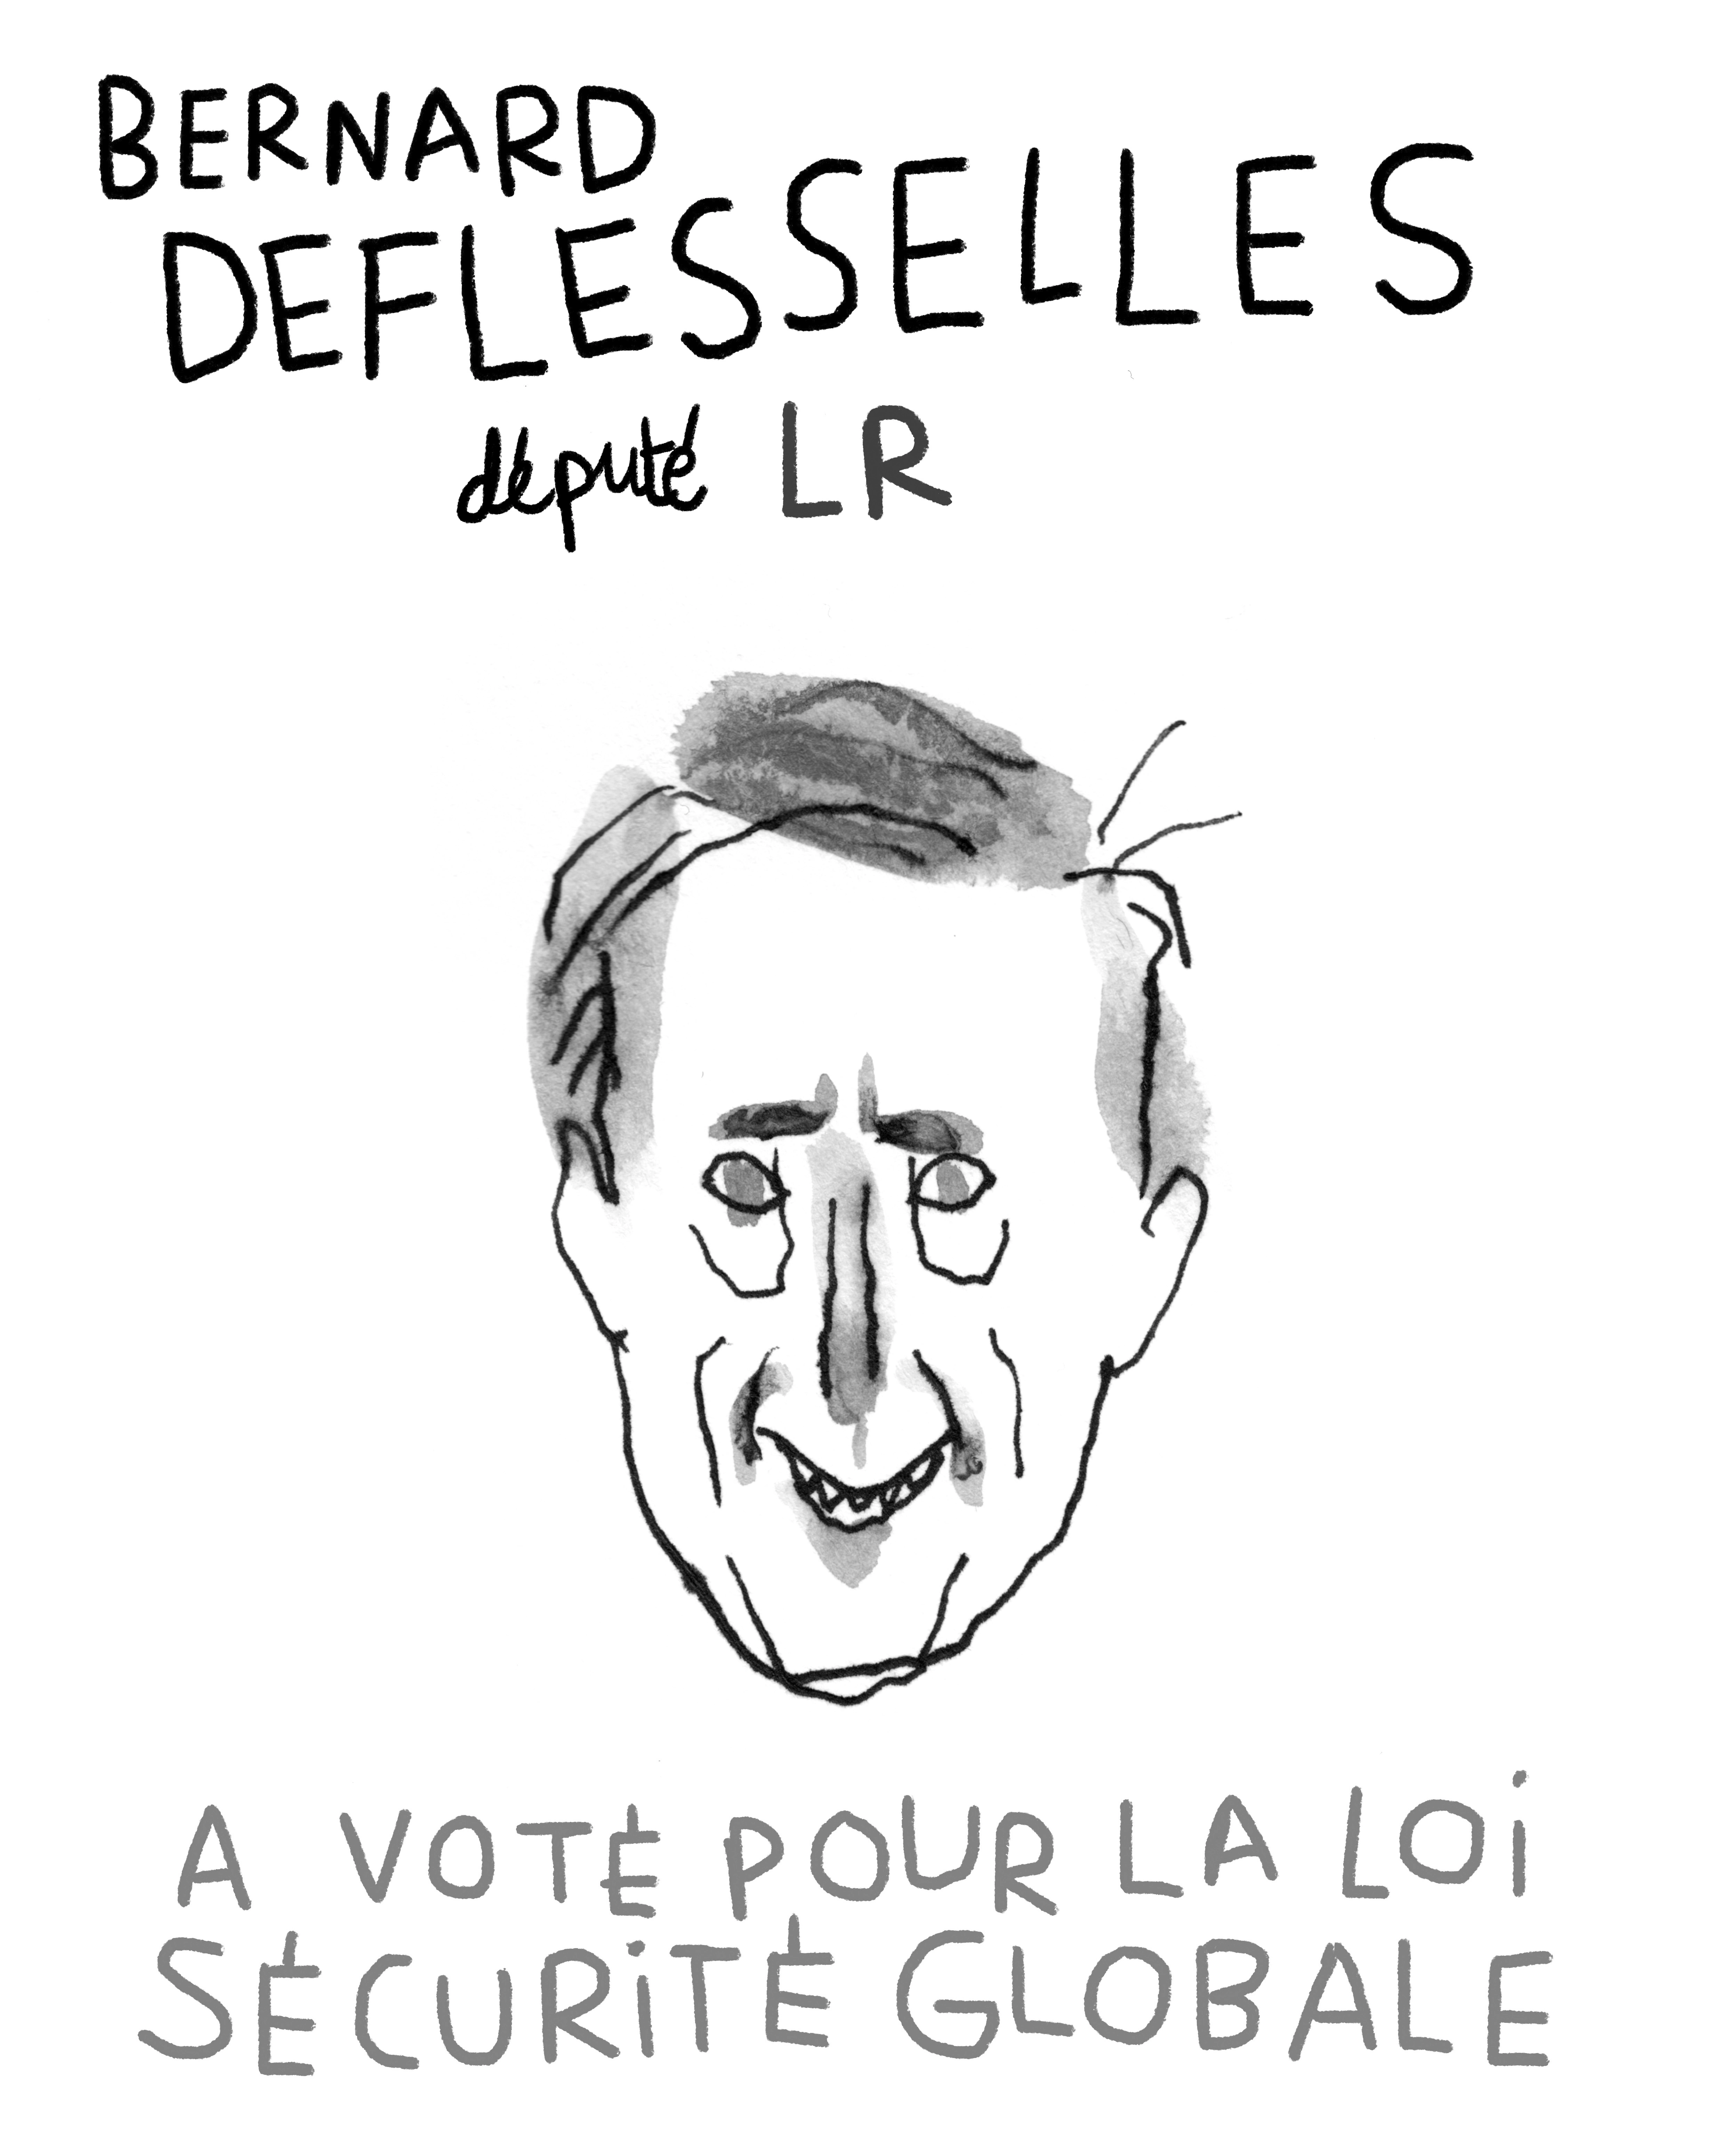 BERNARD
DEFLESSELLES
député LR
A VOTÉ POUR LA LOi
SÉCURiTÉ GLOBALE